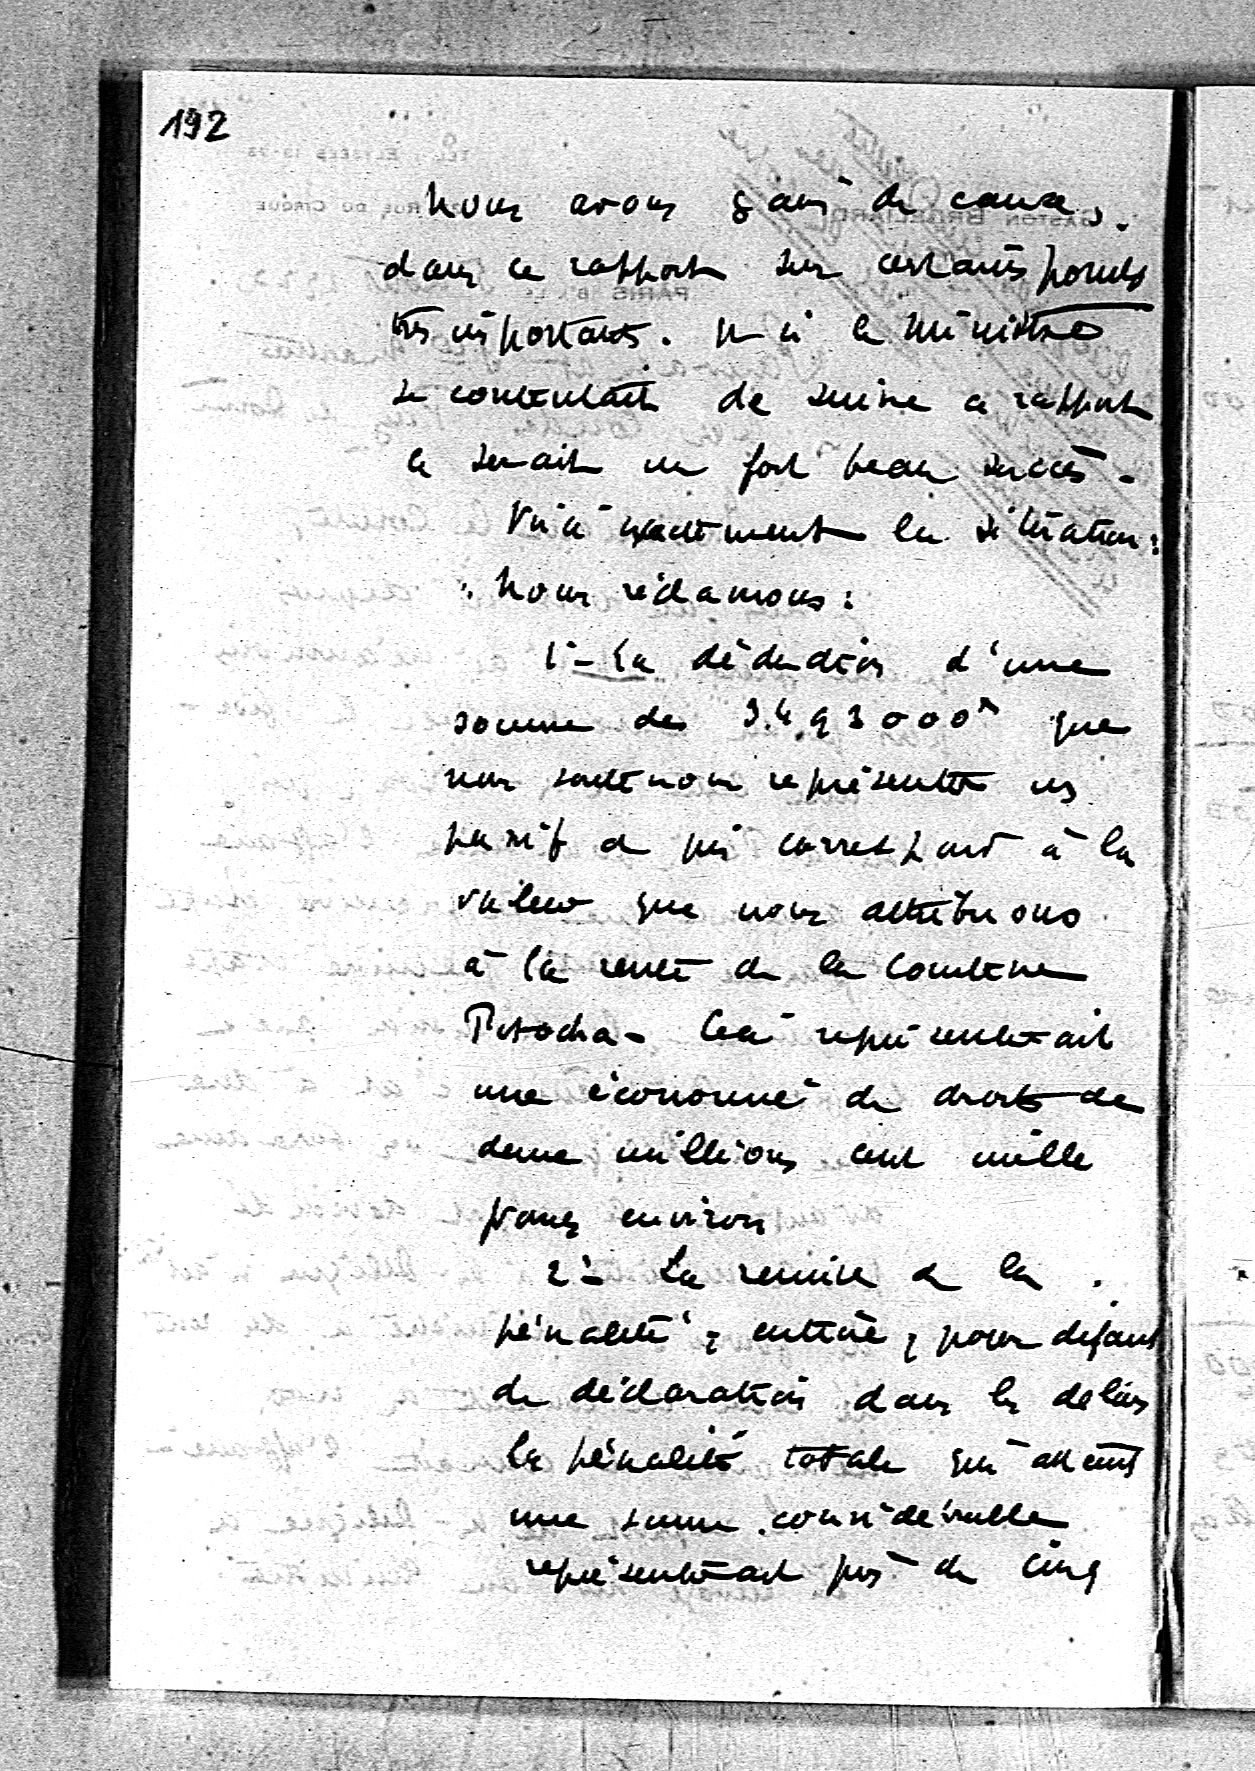 192
Nous avons gain de cause
dans ce rapport sur certains points
très importants. Si le Ministre
se contentait de suivre ce rapport
ce serait un fort beau succès.
Voici exactement la situation:
Nous réclamons:
1°- La déduction d'une
somme de 3.493000 que
nous soutenons représenter un
passif et qui correspond à la
valeur que nous attribuons
à la rente de la Comtesse
Potocka. Ceci représenterait
une économie de droits de
deux millions cent mille
francs environ
2°- La remise de la
pénalité, entière, pour défaut
de déclaration dans les délais
la pénalité totale qui atteint
une somme considérable
représenterait près de cinq